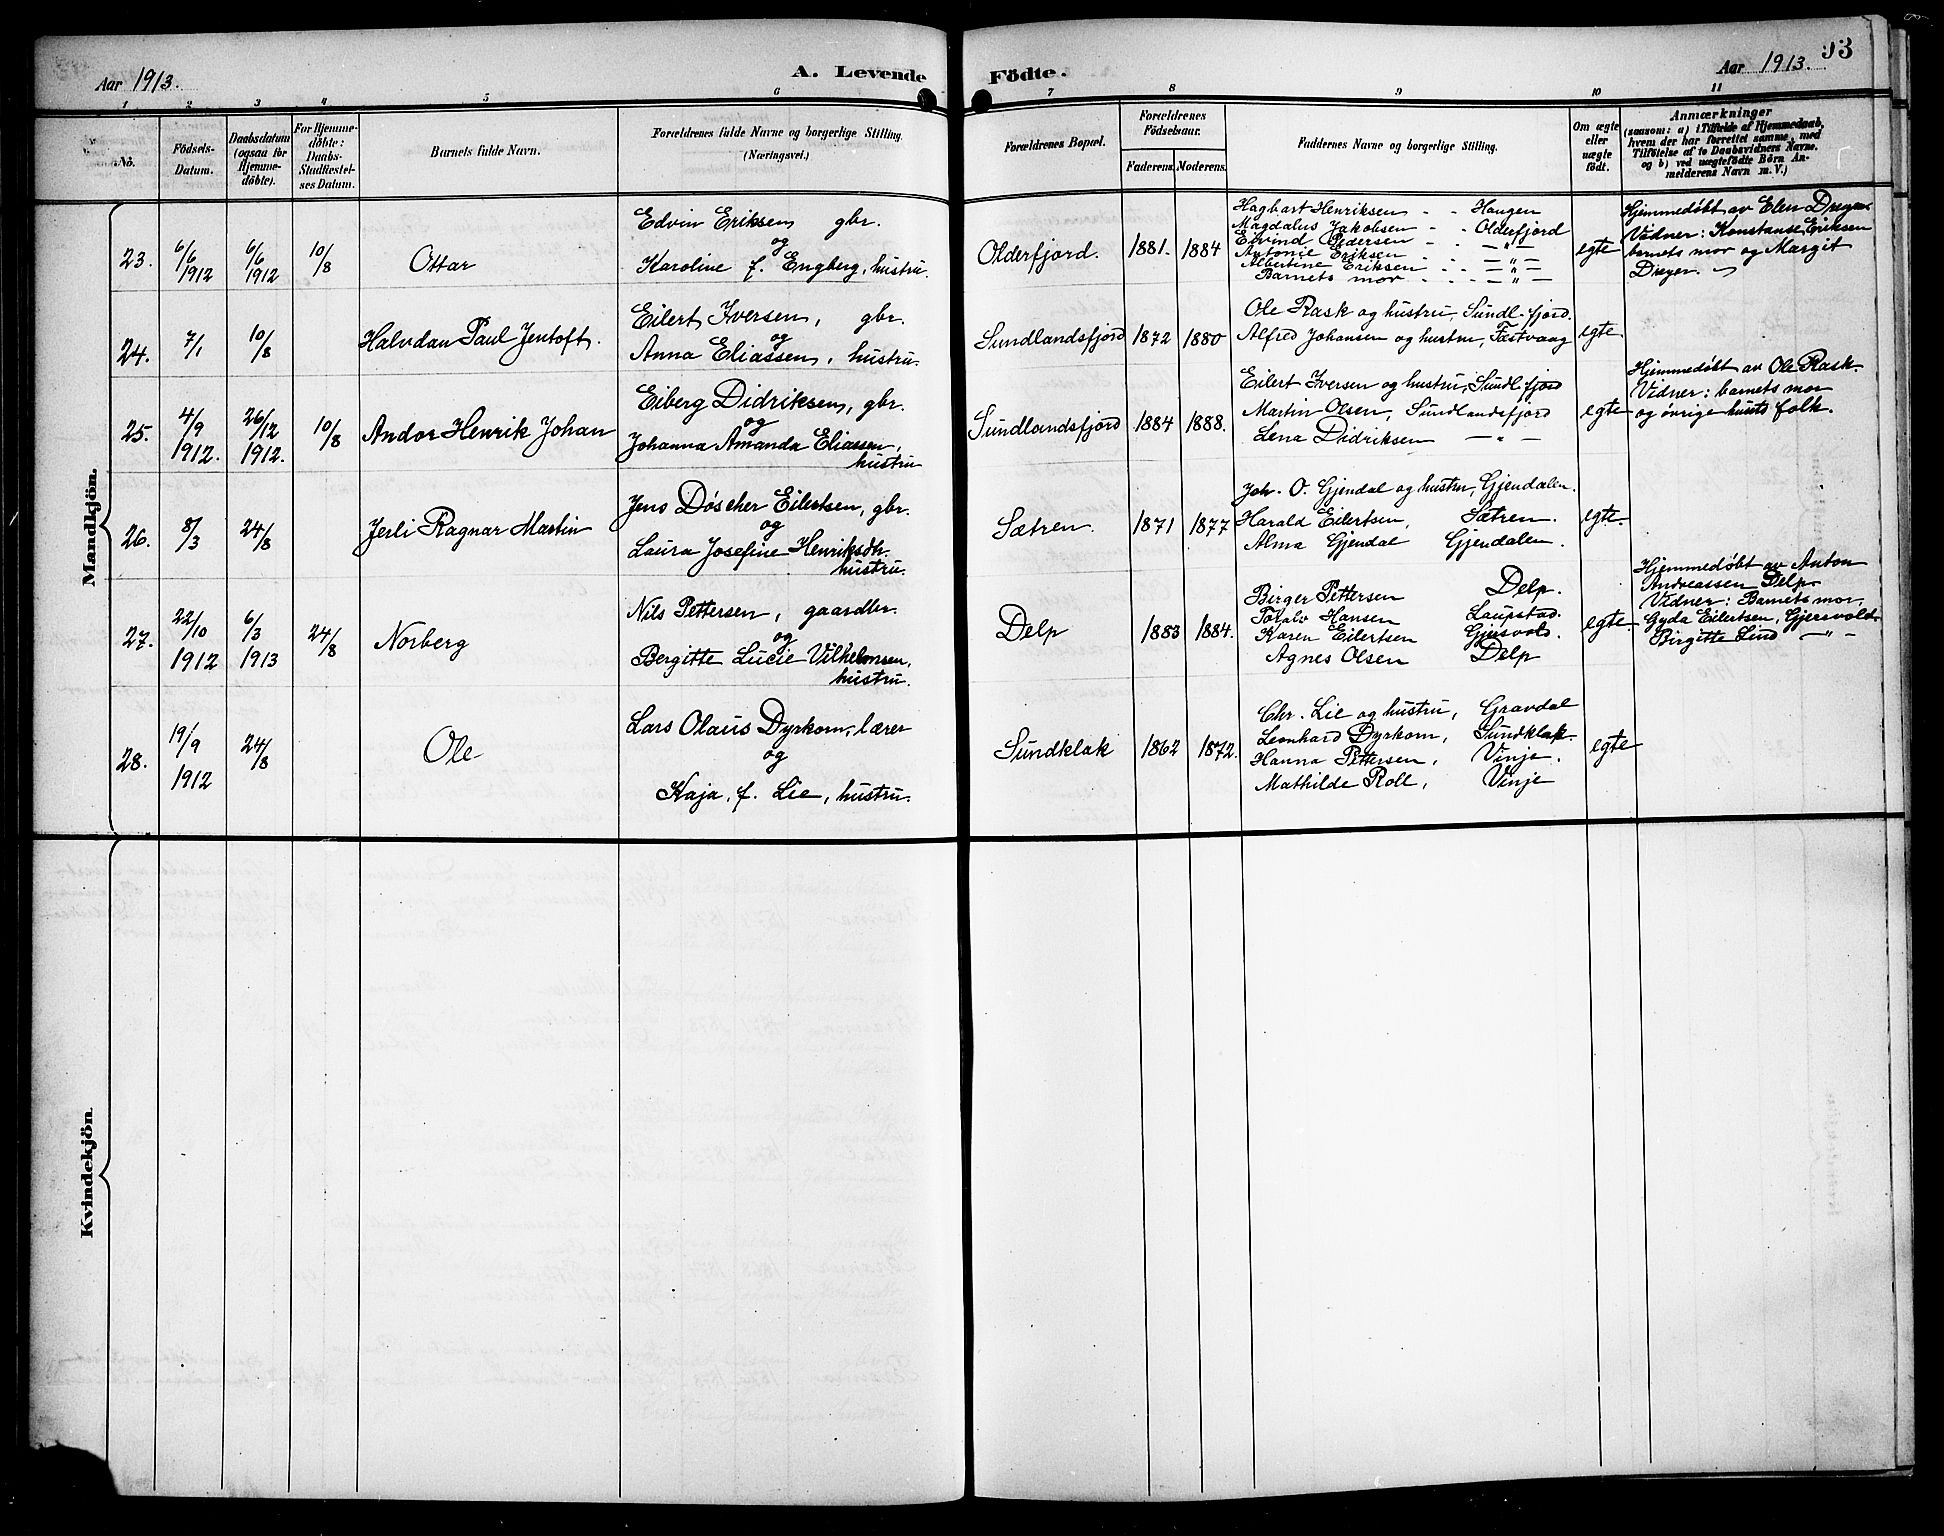 93
Aar 1913.
A. Levende Födte.
Aar 1913.
1 2 3 4 5 6 7 8 9 10 11
No.
Födsels-
Datum.
Daabsdatum
(ogsaa for
Hjemme-
døbte).
For Hjemme-
døbte:
Daabs-
Stadfæstel-
ses Datum.
Barnets fulde Navn.
Forældrenes fulde Navne og borgerlige Stilling.
(Næringsvei.)
Forældrenes Bopæl.
Forældrenes
Födselsaar.
Faderens. Moderens.
Faddernes Navne og borgerlige Stilling.
Om ægte
eller
uægte
födt.
Anmærkninger
(saasom: a) i Tilfælde af Hjemmedaab,
hvem der har forrettet samme, med
Tilföielse af to Daabsvidners Navne.
og b) ved uægtefödte Börn An-
melderens Navn m. V.)
Mandkjön.
23.
6/6
1912
6/6
1912
10/8
Ottar
Edvin Eriksen, gbr.
og
Karoline f. Engberg, hustru.
Olderfjord.
1881.
1884
Hagbart Henriksen - - Haugen
Magdalus Jakobsen - - Olderfjord
Eivind Pedersen - - — " —
Antonie Eriksen - - — " —
Albertine Eriksen - - — " —
Barnets mor - - - — " —
egte
Hjemmedøbt av Elen Dreyer.
Vidner: Konstanse Eriksen
barnets mor og Margit
Dreyer.
24.
7/1
10/8
Halvdan Paul Jentoft.
Eilert Iversen, gbr.
og
Anna Eliassen, hustru.
Sundlandsfjord
1872
1880
Ole Rask og hustru, Sundl.fjord.
Alfred Johansen og hustru, Fastvaag
egte
25.
4/9
1912.
26/12
1912.
10/8
Andor Henrik Johan
Eiberg Didriksen, gbr.
og
Johanna Amanda Eliassen,
hustru
Sundlandsfjord
1884
1888.
Eilert Iversen og hustru, Sundl.fjord
Martin Olsen, Sundlandsfjord
Lena Didriksen — " —
egte
Hjemmedøbt av Ole Rask.
Vidner: barnets mor
og øvrige husts folk.
26.
8/3
24/8
Jerli Ragnar Martin
Jens Døscher Eilertsen, gbr.
og
Laura Josefine Henriksdtr.
hustru.
Sætren.
1871
1877
Joh. O. Gjendal og hustru, Gjendalen.
Harald Eilertsen, Sætren.
Alma Gjendal Gjendalen.
egte.
27.
22/10
1912
6/3
1913
24/8
Norberg
Nils Pettersen, gaardbr.
og
Bergitte Lucie Vilhelmsen,
hustru.
Delp
1883
1884.
Birger Pettersen Delp.
Toralv Hansen Laupstad.
Karen Eilertsen Gjersvold.
Agnes Olsen Delp
egte.
Hjemmedøbt av Anton
Andreassen Delp.
Vidner: Barnets mor,
Gyda Eilertsen, Gjersvold.
Birgitte Lind — " —
28.
19/9
1912
24/8
Ole
Lars Olaus Dyrkorn, lærer
og
Kaja, f. Lie, hustru.
Sundklak
1862
1872.
Chr. Lie og hustru, Gravdal
Leonhard Dyrkorn, Sundklak.
Hanna Pettersen, Vinje.
Mathilde Roll, Vinje
egte
Kvindekjön.